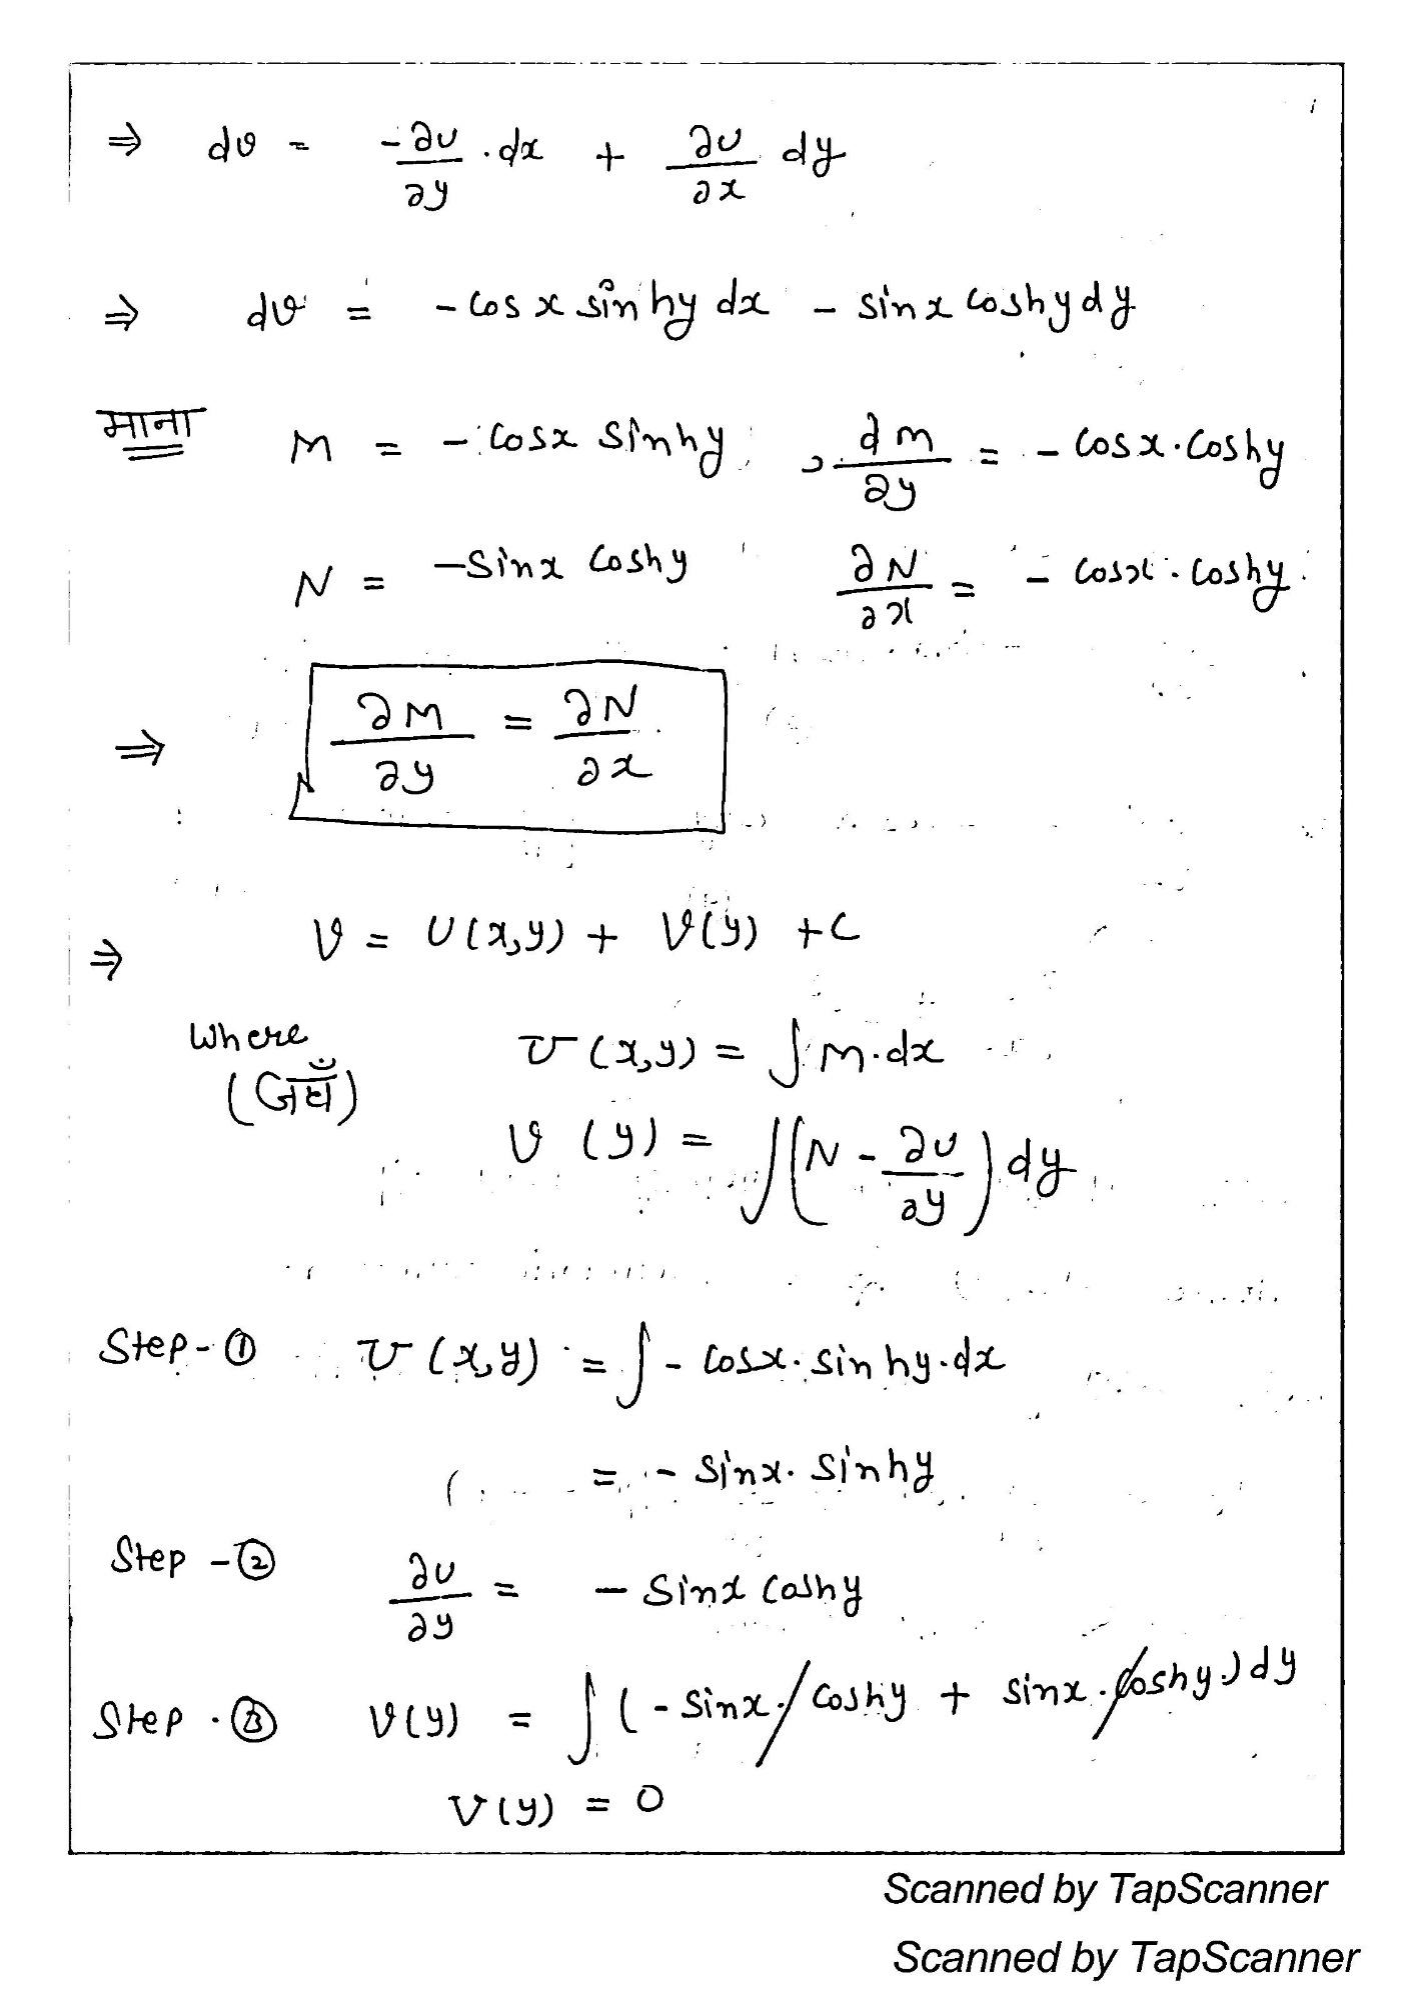 ⇒ dv = -∂u/∂y . dx + ∂u/∂x dy
⇒ dv = - cos x sin hy dx - sin x coshy dy
माना M = - cosx sinhy , ∂m/∂y = - cosx . coshy
N = -sinx coshy ∂N/∂x = - cosx . coshy
⇒ ∂M/∂y = ∂N/∂x
⇒ V = U(x,y) + V(y) + C
Where U(x,y) = ∫ M.dx
(जहाँ) V(y) = ∫(N - ∂u/∂y) dy
Step-① U(x,y) = ∫ - cosx . sin hy . dx
= - sinx . sinhy
Step-② ∂u/∂y = - sinx coshy
Step.③ V(y) = ∫ (- sinx . coshy + sinx . coshy) dy
V(y) = 0
Scanned by TapScanner
Scanned by TapScanner